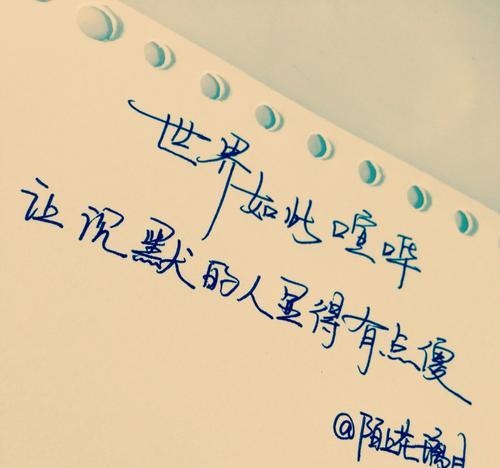 世界如此喧哗
让沉默的人显得有点傻
@陌上花璃日